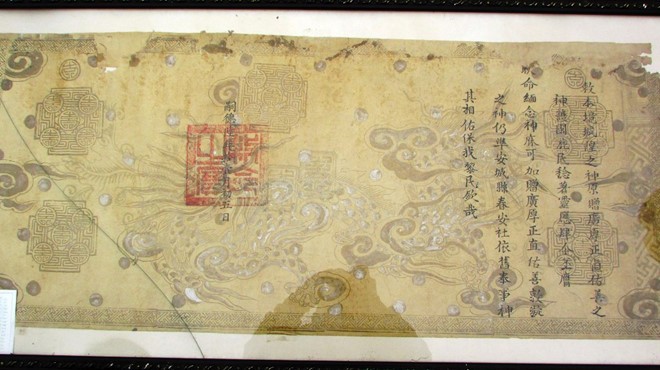 敕本境城隍之神原贈廣厚正直佑善之
神護國庇民稔著靈應肆今丕膺
耿命緬念神庥可加贈廣厚正直佑善敦凝
之神仍準安城縣春安社依舊奉事神
其相佑保我黎民欽哉
嗣德五日
敕命之寶